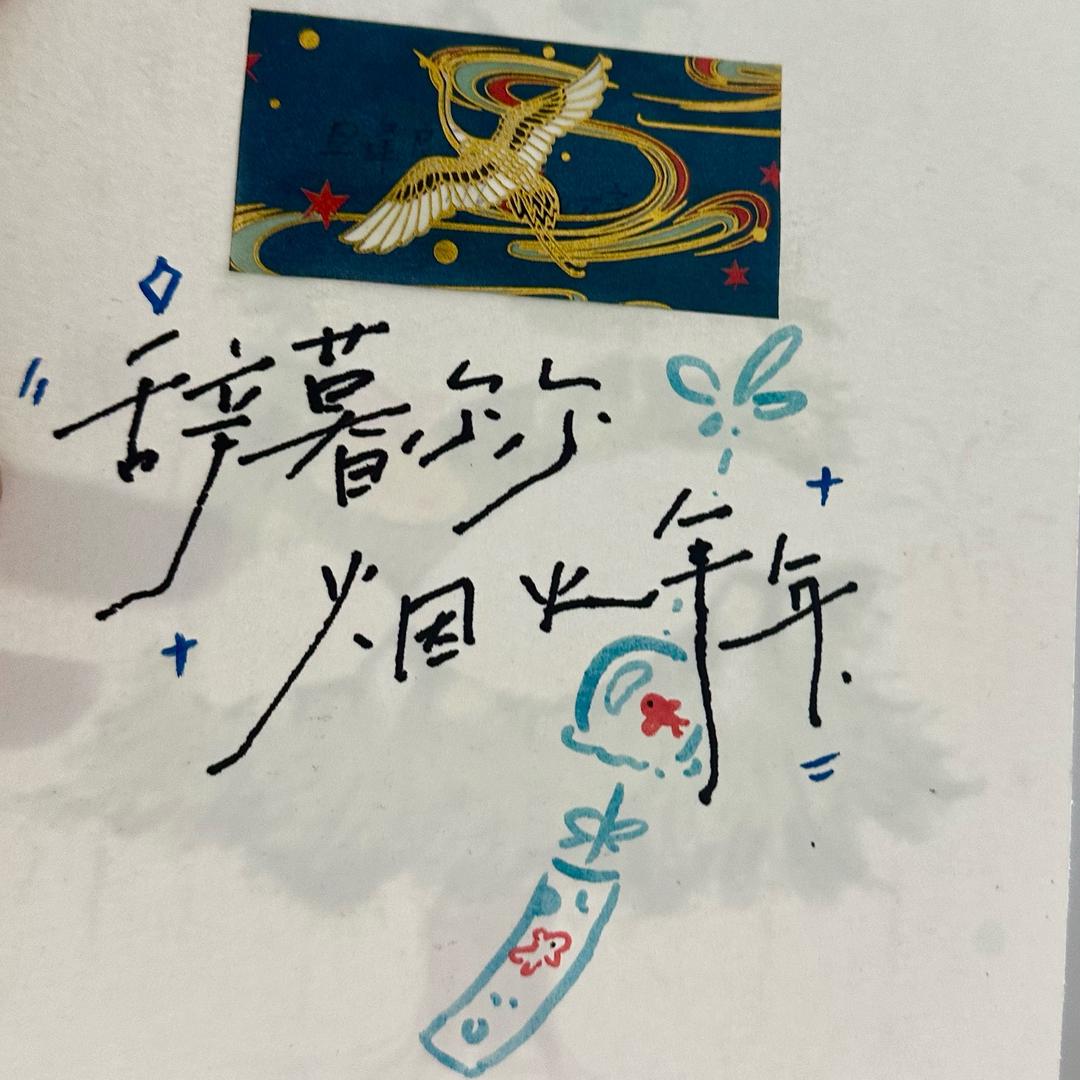 "辞暮尔尔
烟火年年."